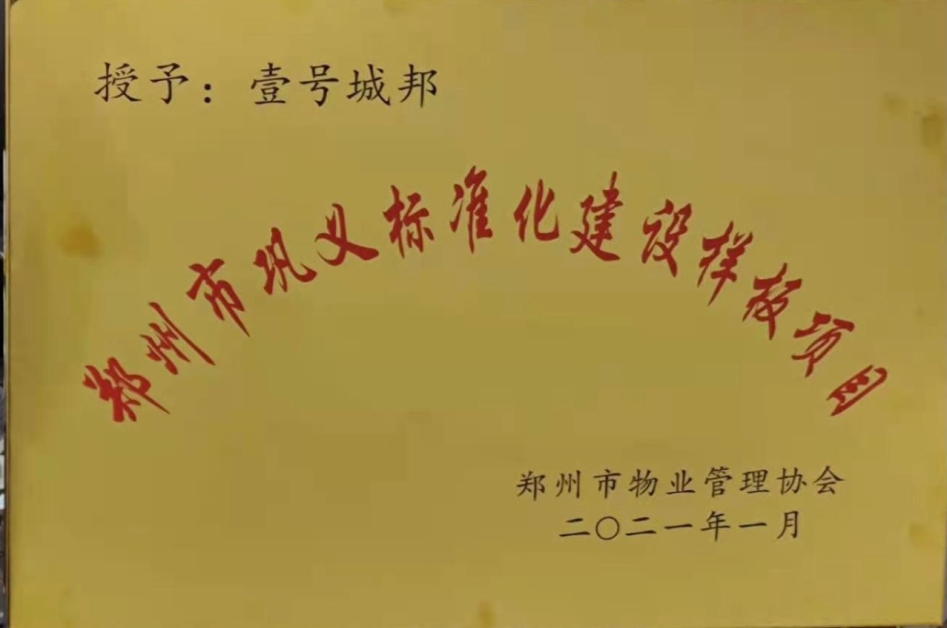 授予：壹号城邦
郑州市巩义标准化建设样板项目
郑州市物业管理协会
二〇二一年一月